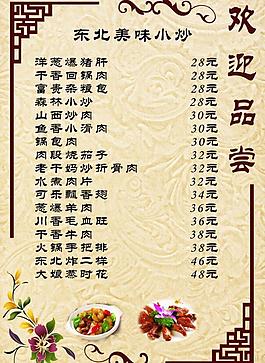 欢迎品尝
东北美味小炒
洋葱爆猪肝 28元
干香回锅肉 28元
富贵杂粮包 28元
森林小炒 28元
山西炒肉 30元
鱼香小滑肉 30元
锅包肉 30元
肉段烧茄子 32元
老干妈炒折骨肉 32元
水煮肉片 32元
可乐飘香翅 34元
葱爆羊肉 36元
川香毛血旺 36元
干香牛肉 38元
火锅手把排 38元
东北炸二样 46元
大娘葱时花 48元